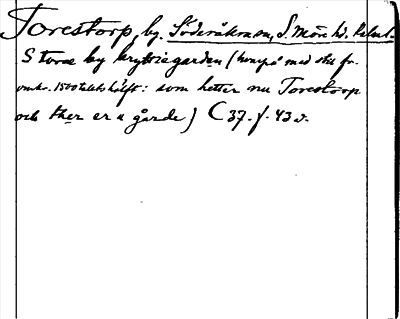 Torestorp, by. Söderåkra sn, S. Möre hd. Kalm. l.
Store by krytziegarden (härpå med stil fr.
omkr. 1500talets hälft: som hetter nu Torestorp
och ther er u gårde) C 37. f. 43 v.